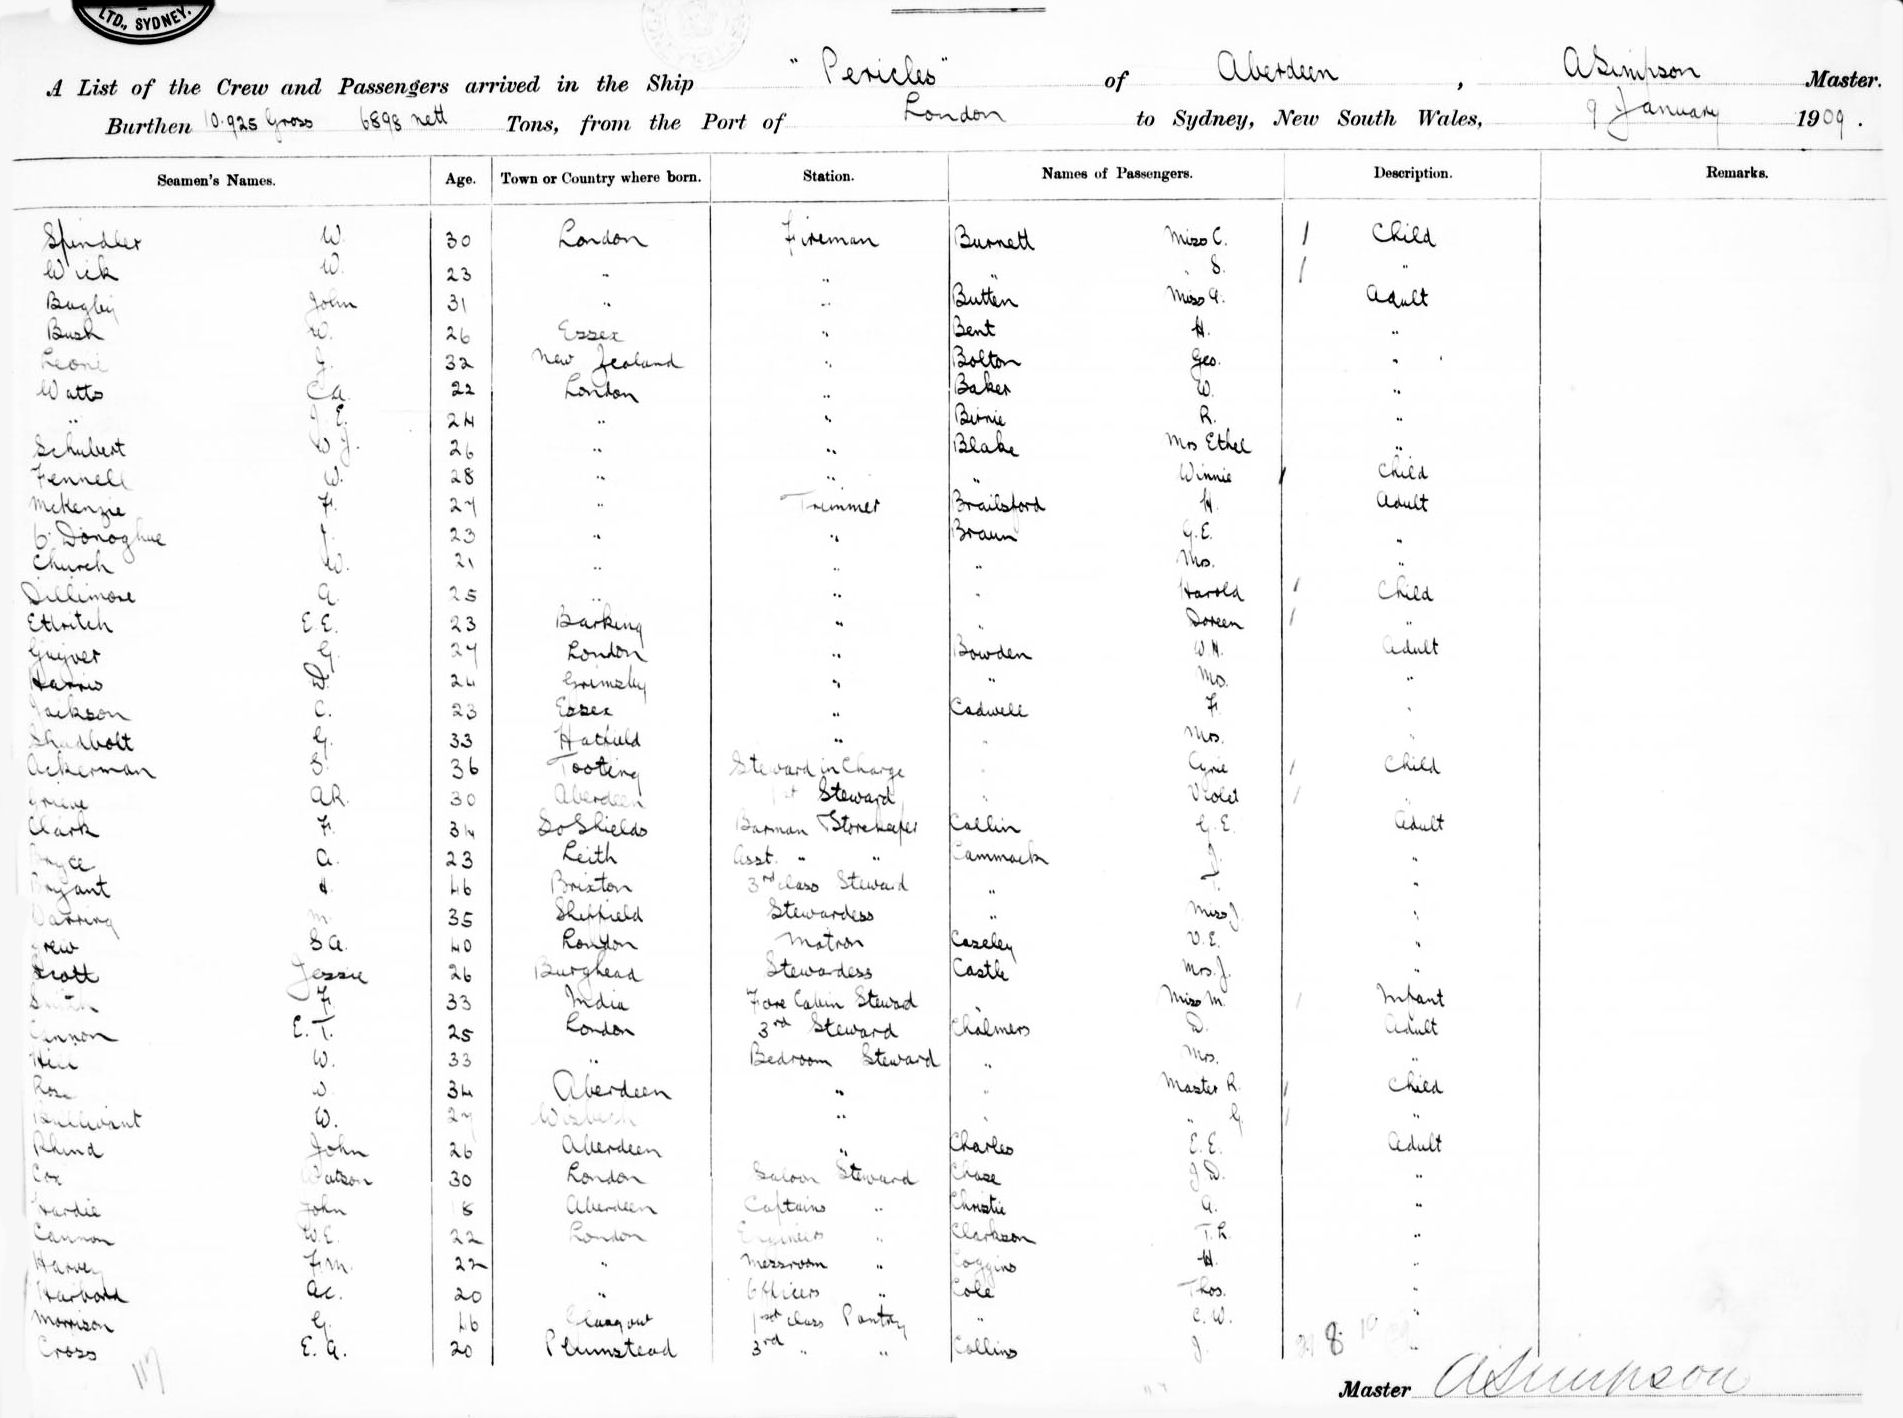 LTD., SYDNEY.
A List of the Crew and Passengers arrived in the Ship "Pericles" of Aberdeen, A Simpson Master.
Burthen 10.925 Gross 6898 nett Tons, from the Port of London to Sydney, New South Wales, 9 January 1909.
Seamen's Names. Age. Town or Country where born. Station. Names of Passengers. Description. Remarks.
Spindler W. 30 London Fireman Burnett Miss C. 1 Child
Wick W. 23 " " " " S. 1 "
Bugby John 31 " " Butten Miss A. Adult
Bush W. 26 Essex " Bent H. "
Leoni G. 32 New Zealand " Bolton Geo. "
Watts C.A. 22 London " Baker W. "
" J.E. 24 " " Birnie R. "
Schubert J. 26 " " Blake Mrs Ethel "
Fennell W. 28 " " " Winnie 1 Child
McKenzie F. 27 " Trimmer Brailsford H. Adult
O'Donoghue J. 23 " " Braun G.E. "
Church W. 21 " " " Mrs. "
Dillimore A. 25 " " " Harold 1 Child
Eldritch E.E. 23 Barking " " Doreen 1 "
Guyver G. 27 London " Bowden W.H. Adult
Harris D. 24 Grimsby " " Mrs. "
Jackson C. 23 Essex " Cadwell F. "
Shadbolt G. 33 Hatfield " " Mrs. "
Ackerman S. 36 Tooting Steward in Charge " Cyril 1 Child
Grieve A.R. 30 Aberdeen 1st Steward " Violet 1 "
Clark F. 34 So Shields Barman & Storekeeper Callin G.E. Adult
Boyce A. 23 Leith Asst. " " Cammack J. "
Bryant H. 46 Brixton 3rd class Steward " T. "
Darring M. 35 Sheffield Stewardess " Miss J. "
Drew S.A. 40 London Matron Caseley V.E. "
Scott Jessie 26 Burghead Stewardess Castle Mrs. J. "
Smith F. 33 India Fore Cabin Steward " Miss M. 1 Infant
Cannon E.T. 25 London 3rd Steward Chalmers D. Adult
Hill W. 33 " Bedroom Steward " Mrs. "
Rose W. 34 Aberdeen " " Master R. 1 Child
Bullivant W. 27 Wisbech " " " G. 1 "
Rhind John 26 Aberdeen " Charles E.E. Adult
Cox Watson 30 London Saloon Steward Chase J.D. "
Hardie John 18 Aberdeen Captains " Christie A. "
Cannon W.E. 22 London Engineers " Clarkson T.L. "
Harvey F.M. 22 " Messroom " Coggins H. "
Harbord A.C. 20 " Officers " Cole Thos. "
Morrison G. 46 Glasgow 1st class Pantry " C.W. "
Cross E.A. 20 Plumstead 3rd " " Collins J. "
31 8 10
117
Master A Simpson